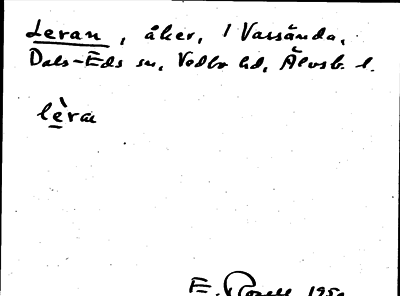 Leran, åker, 1 Vassända,
Dals-Eds sn, Vedbo hd, Älvsb. l.
lèran
E. Rosell